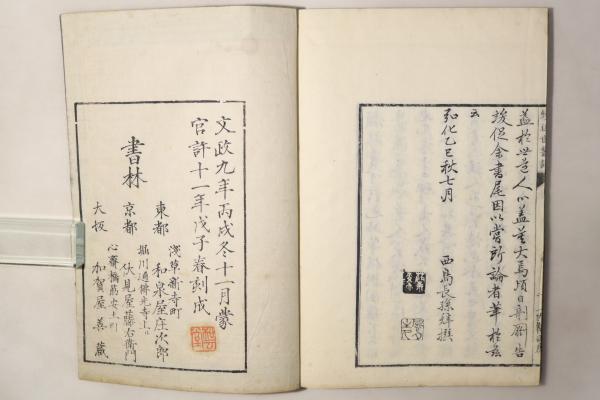 益於世道人心蓋莫大焉頃日剞劂告
竣促余書尾因以嘗所論者筆於茲
云
弘化乙巳秋七月
西島長孫辤撰
文政九年丙戌冬十一月蒙
官許十一年戊子春刻成
書林
東都
淺草新寺町
和泉屋庄次郎
京都
堀川通佛光寺上ル
伏見屋藤右衛門
大坂
心齋橋筋安土町
加賀屋善藏